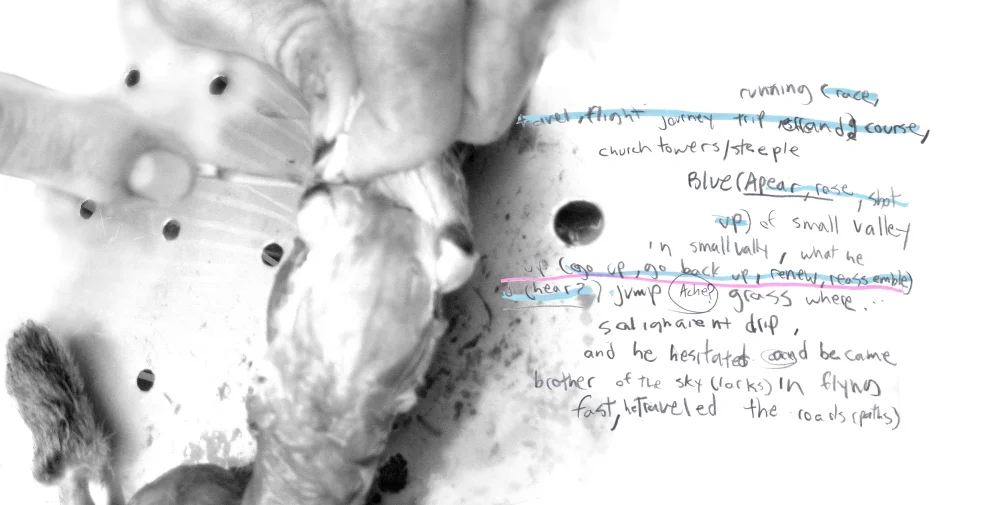 running (race,
travel, flight journey trip errand) course,
church towers/steeple
Blue (Apear, rose, shot
up) of small valley
in small vally, what he
up (go up, go back up, renew, reassemble)
(hear?) jump (Ache?) grass where...
drip,
and he hesitated and became
brother of the sky (larks) in flyng
fast, he traveled the roads (paths)